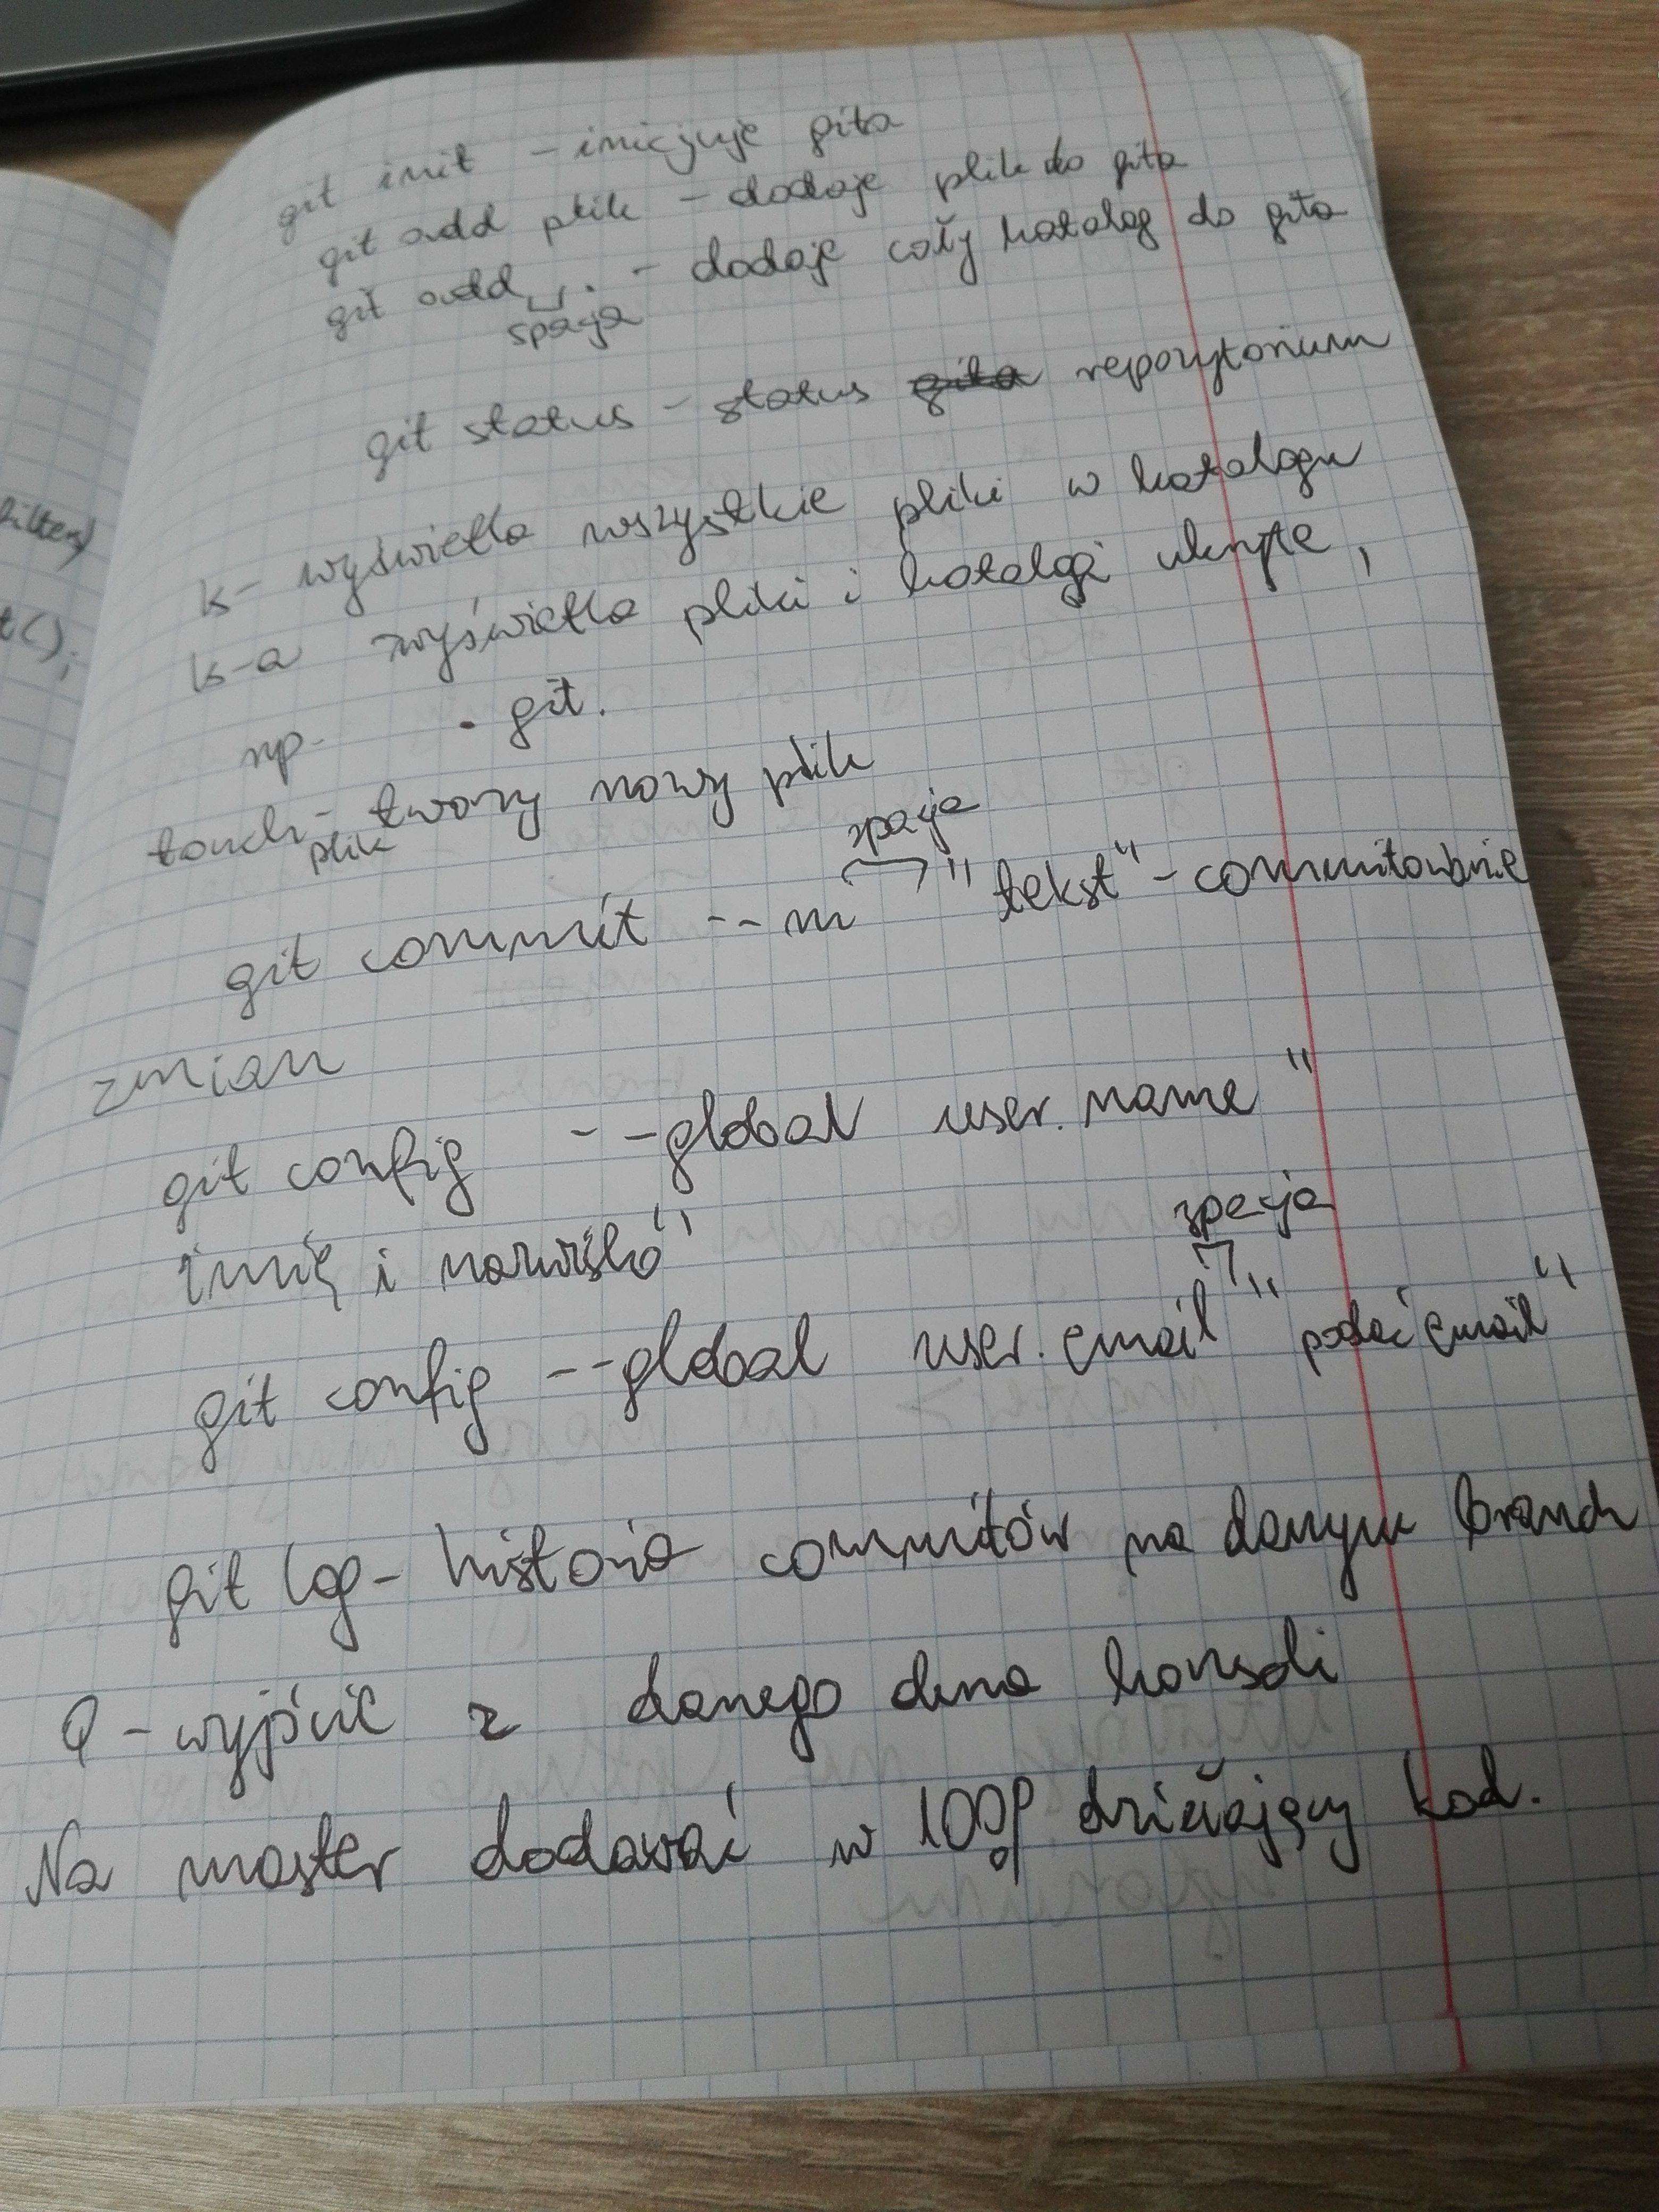 git init - inicjuje gita
git add plik - dodaje plik do gita
git add . - dodaje cały katalog do gita
spacja
git status - status repozytorium
filter)
t();
ls - wyświetla wszystkie pliki w katalogu
ls -a wyświetla pliki i katalogi ukryte,
np. .git.
touch - tworzy nowy plik
plik
spacja
git commit --m "tekst" - commitowanie
zmian
git config --global user.name "
imię i nazwisko"
spacja
git config --global user.email "podać email"
git log - historia commitów na danym branch
Q - wyjście z danego okna konsoli
Na master dodawać w 100% działający kod.